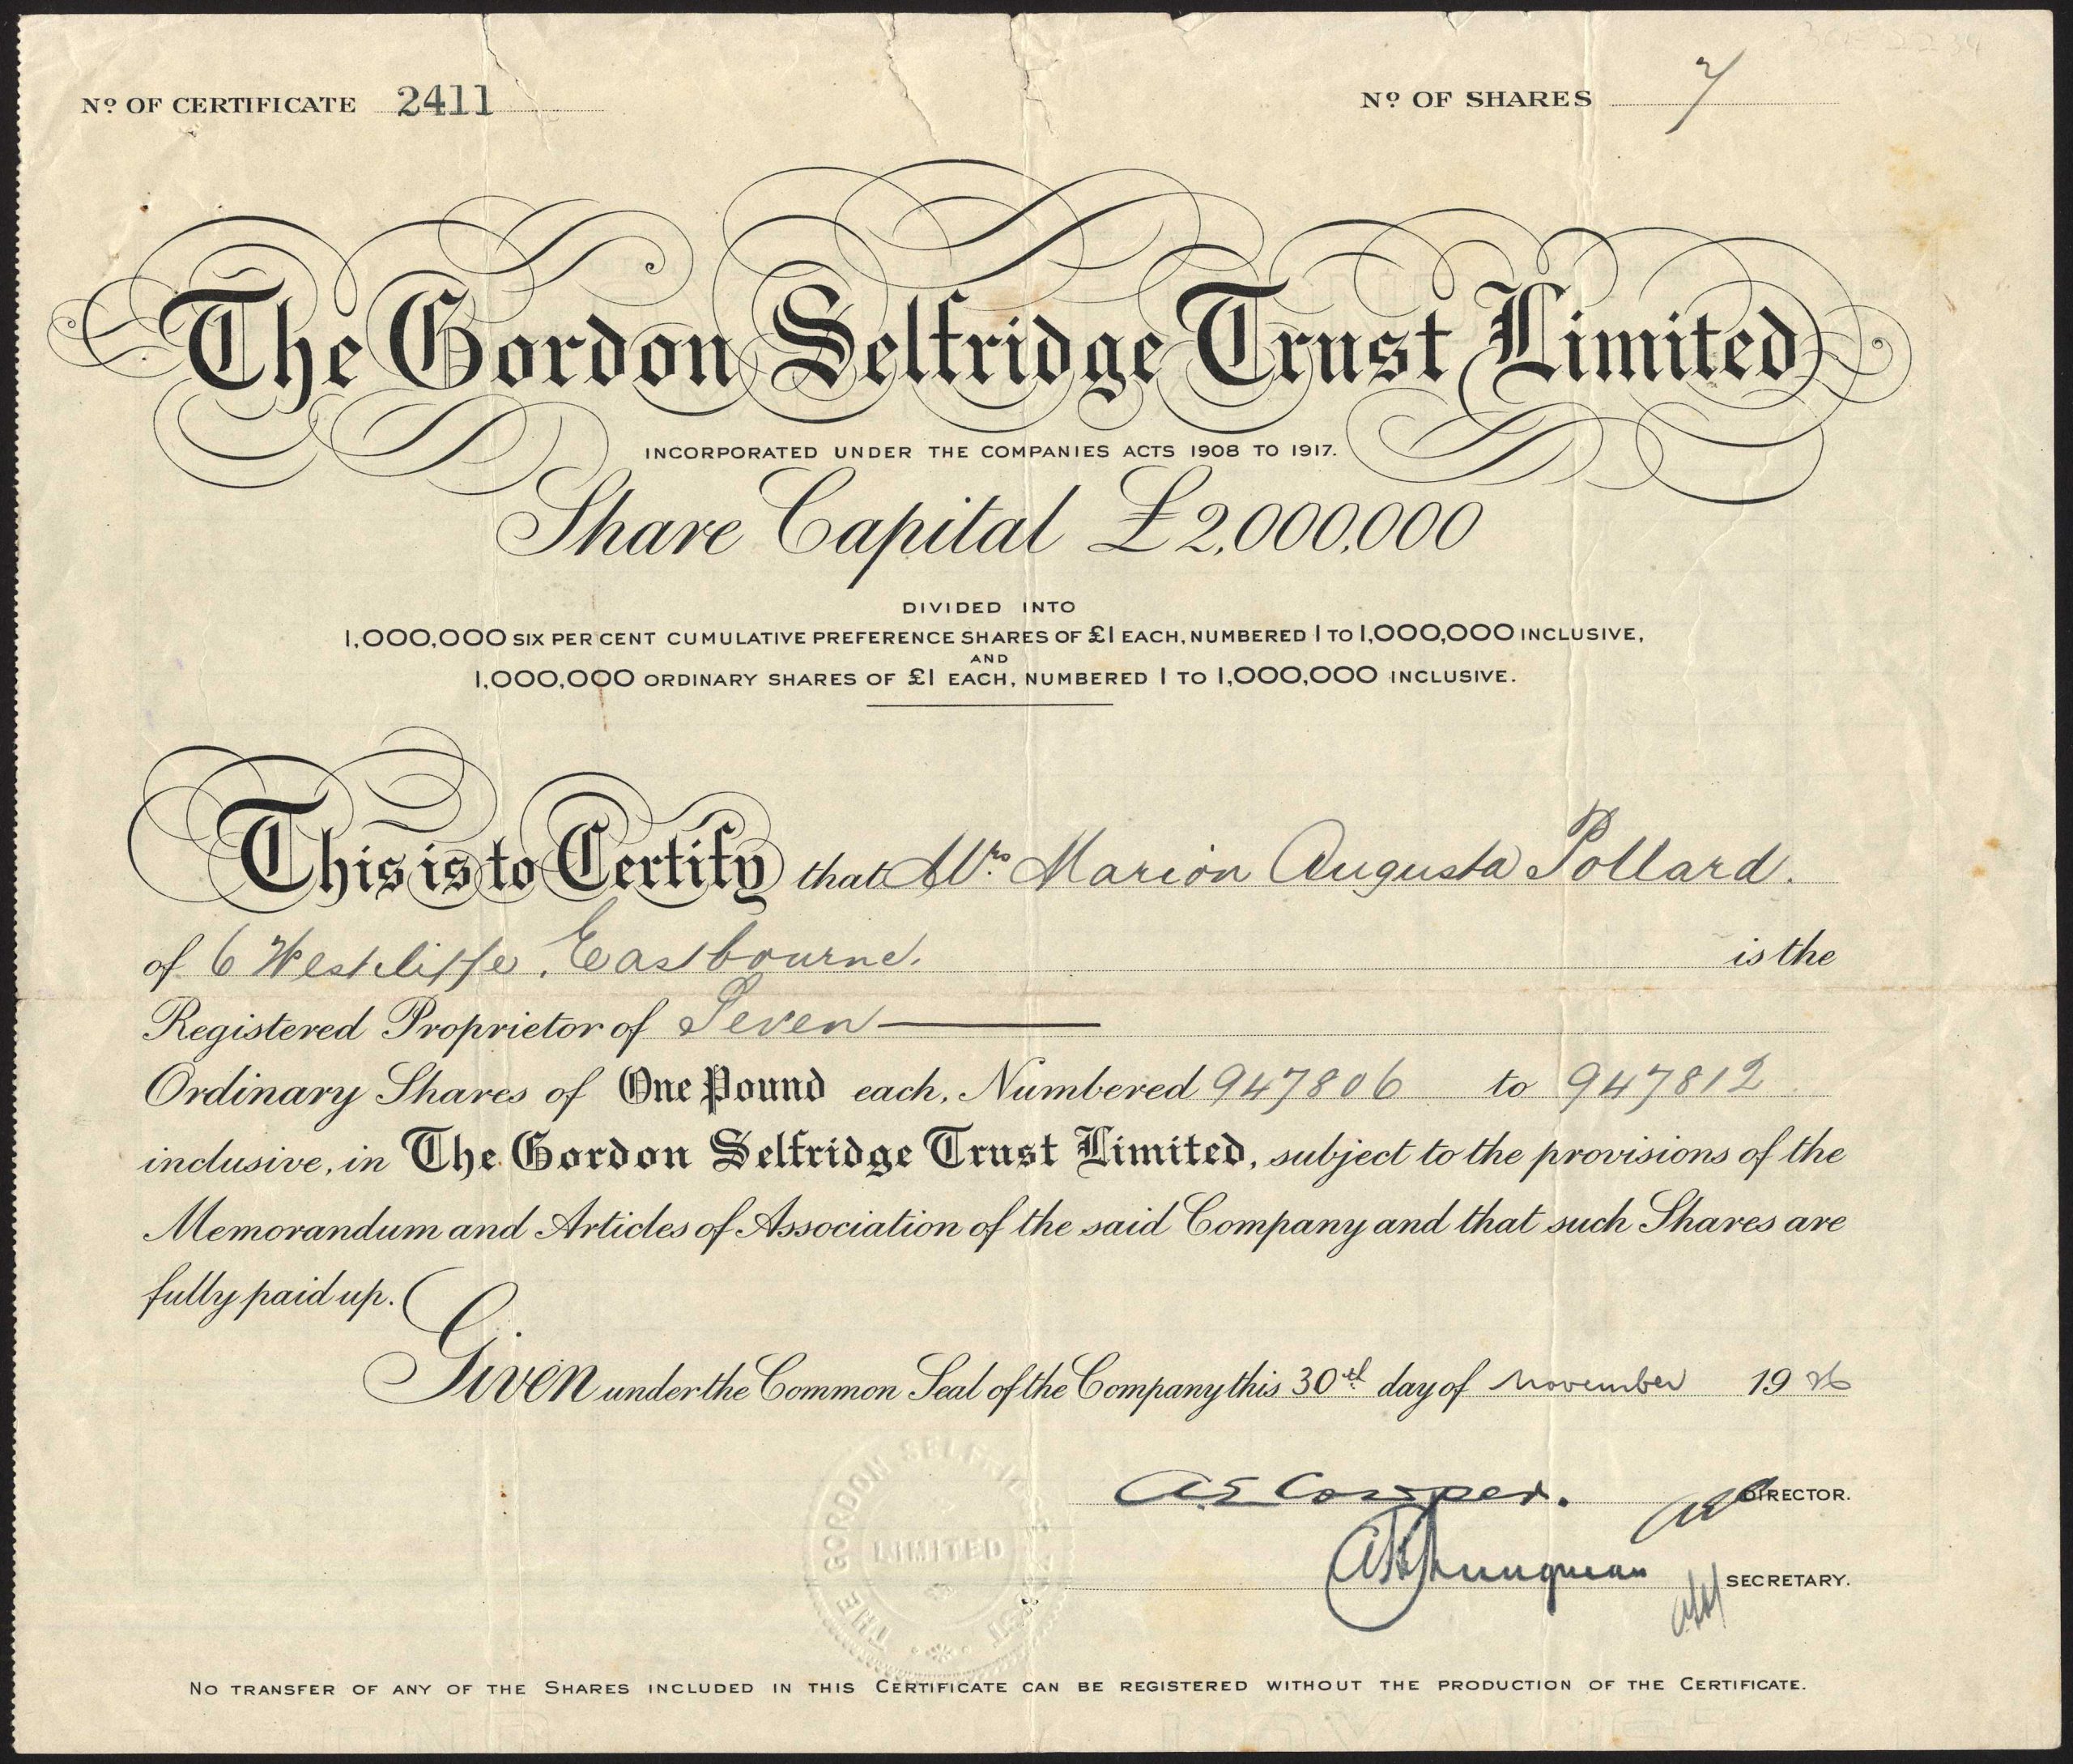 Nº OF CERTIFICATE 2411
Nº OF SHARES 7
The Gordon Selfridge Trust Limited
INCORPORATED UNDER THE COMPANIES ACTS 1908 TO 1917.
Share Capital £2,000,000
DIVIDED INTO
1,000,000 SIX PER CENT CUMULATIVE PREFERENCE SHARES OF £1 EACH, NUMBERED 1 TO 1,000,000 INCLUSIVE,
AND
1,000,000 ORDINARY SHARES OF £1 EACH, NUMBERED 1 TO 1,000,000 INCLUSIVE.
This is to Certify that Mrs Marion Augusta Pollard.
of 6 Westcliffe, Eastbourne. is the
Registered Proprietor of Seven
Ordinary Shares of One Pound each, Numbered 947806 to 947812
inclusive, in The Gordon Selfridge Trust Limited, subject to the provisions of the
Memorandum and Articles of Association of the said Company and that such Shares are
fully paid up.
Given under the Common Seal of the Company this 30th day of November 1926
THE GORDON SELFRIDGE TRUST LIMITED
A E Cowper. DIRECTOR.
SECRETARY.
NO TRANSFER OF ANY OF THE SHARES INCLUDED IN THIS CERTIFICATE CAN BE REGISTERED WITHOUT THE PRODUCTION OF THE CERTIFICATE.